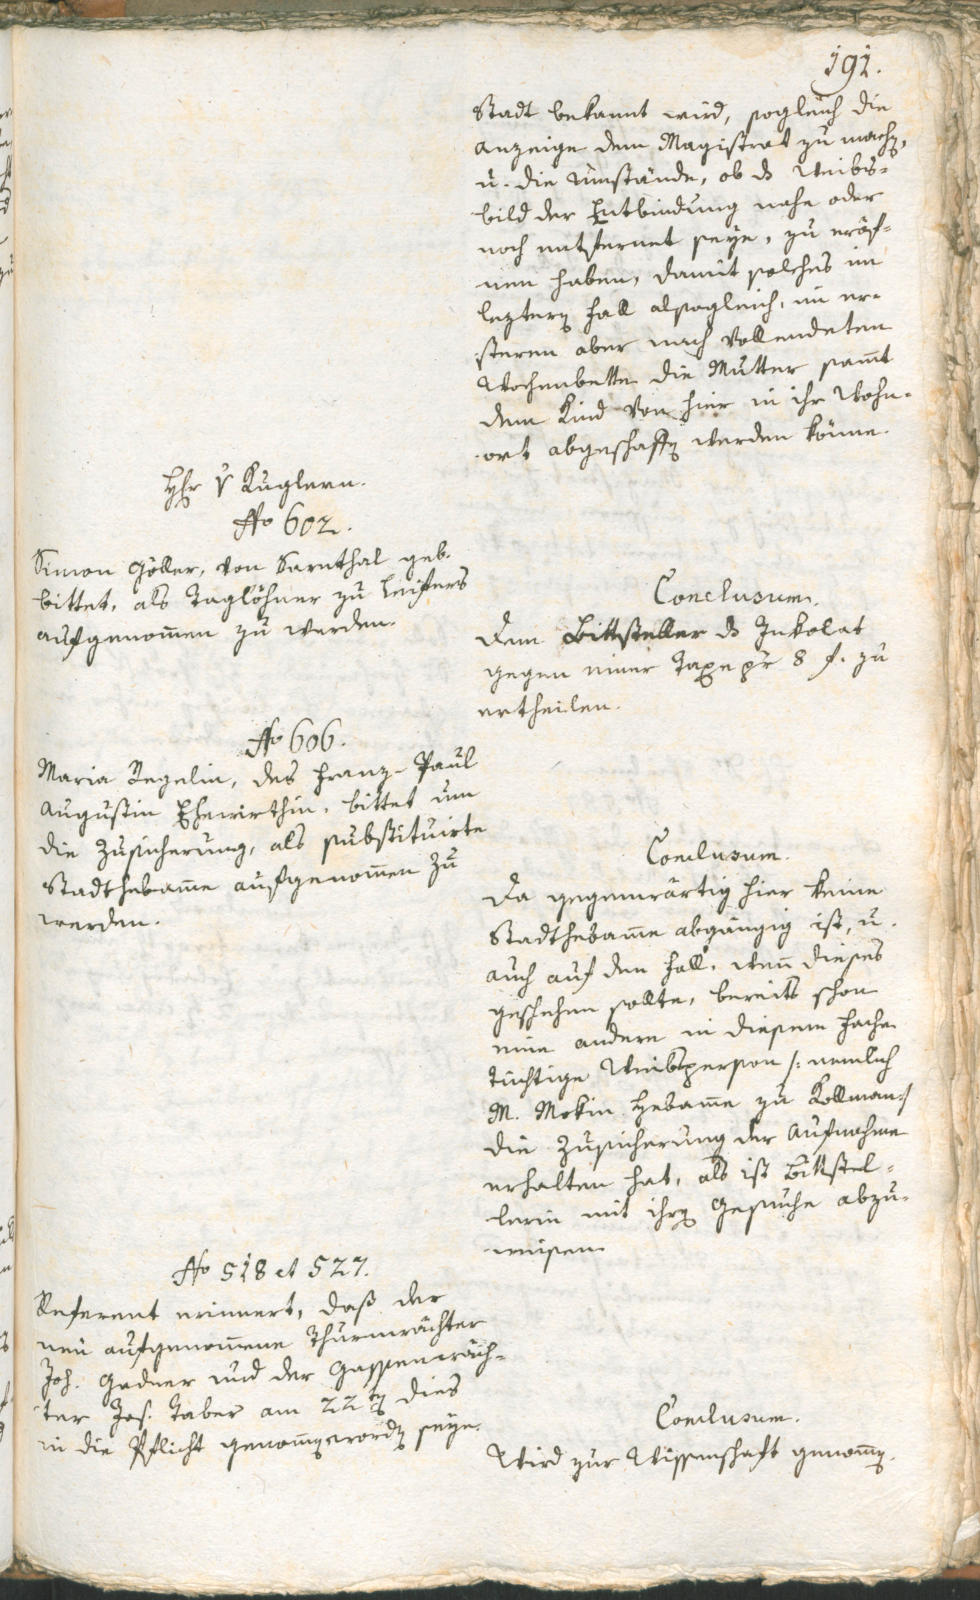 191.
Stadt bekannt wird, sogleich die
Anzeige dem Magistrat zu machen,
u. die Umstände, ob das Weibs-
bild der Entbindung nahe oder
noch entfernet seye, zu eröf-
nen haben, damit solches im
leztern Fall alsogleich, im er-
steren aber nach vollendeten
Wochenbette die Mutter sam̅t
dem Kind von hier in ihr Wohn-
ort abgeschafft werden könne.
Hr v Kuglern.
No 602.
Simon Göller, von Sarnthal geb.
bittet, als Taglöhner zu Leifers
aufgenom̅en zu werden.
Conclusum.
Dem Bittsteller das Inkolat
gegen einer Taxe pr 8 f. zu
ertheilen.
No 606.
Maria Regelin, des Franz-Paul
Augustin Ehewirthin, bittet um
die Zusicherung, als substituirte
Stadthebam̅e aufgenom̅en zu
werden.
Conclusum.
Da gegenwärtig hier keine
Stadthebam̅e abgängig ist, u.
auch auf den Fall, wen̅ dieses
geschehen sollte, bereits schon
eine andere in diesem Fache
tüchtige Weibsperson /: nemlich
M. Mokin Hebam̅e zu Kollman :/
die Zusicherung der Aufnahme
erhalten hat, als ist Bittstel-
lerin mit ihren Gesuche abzu-
weisen.
No 518 et 527.
Referent erinnert, daß der
neu aufgenom̅ene Thurmwächter
Joh. Gadner und der Gassenwäch-
ter Jos. Taber am 22ten dies
in die Pflicht genom̅en worden seye.
Conclusum.
Wird zur Wissenschaft genom̅en.